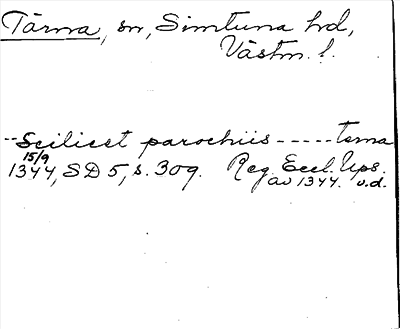 Tärna, sn, Simtuna hd,
Västm. l.
-- Scilicet parochiis ----- terna
15/9
1344, SD 5, s. 309. Reg. Eccl. Ups.
av 1344. o.d.